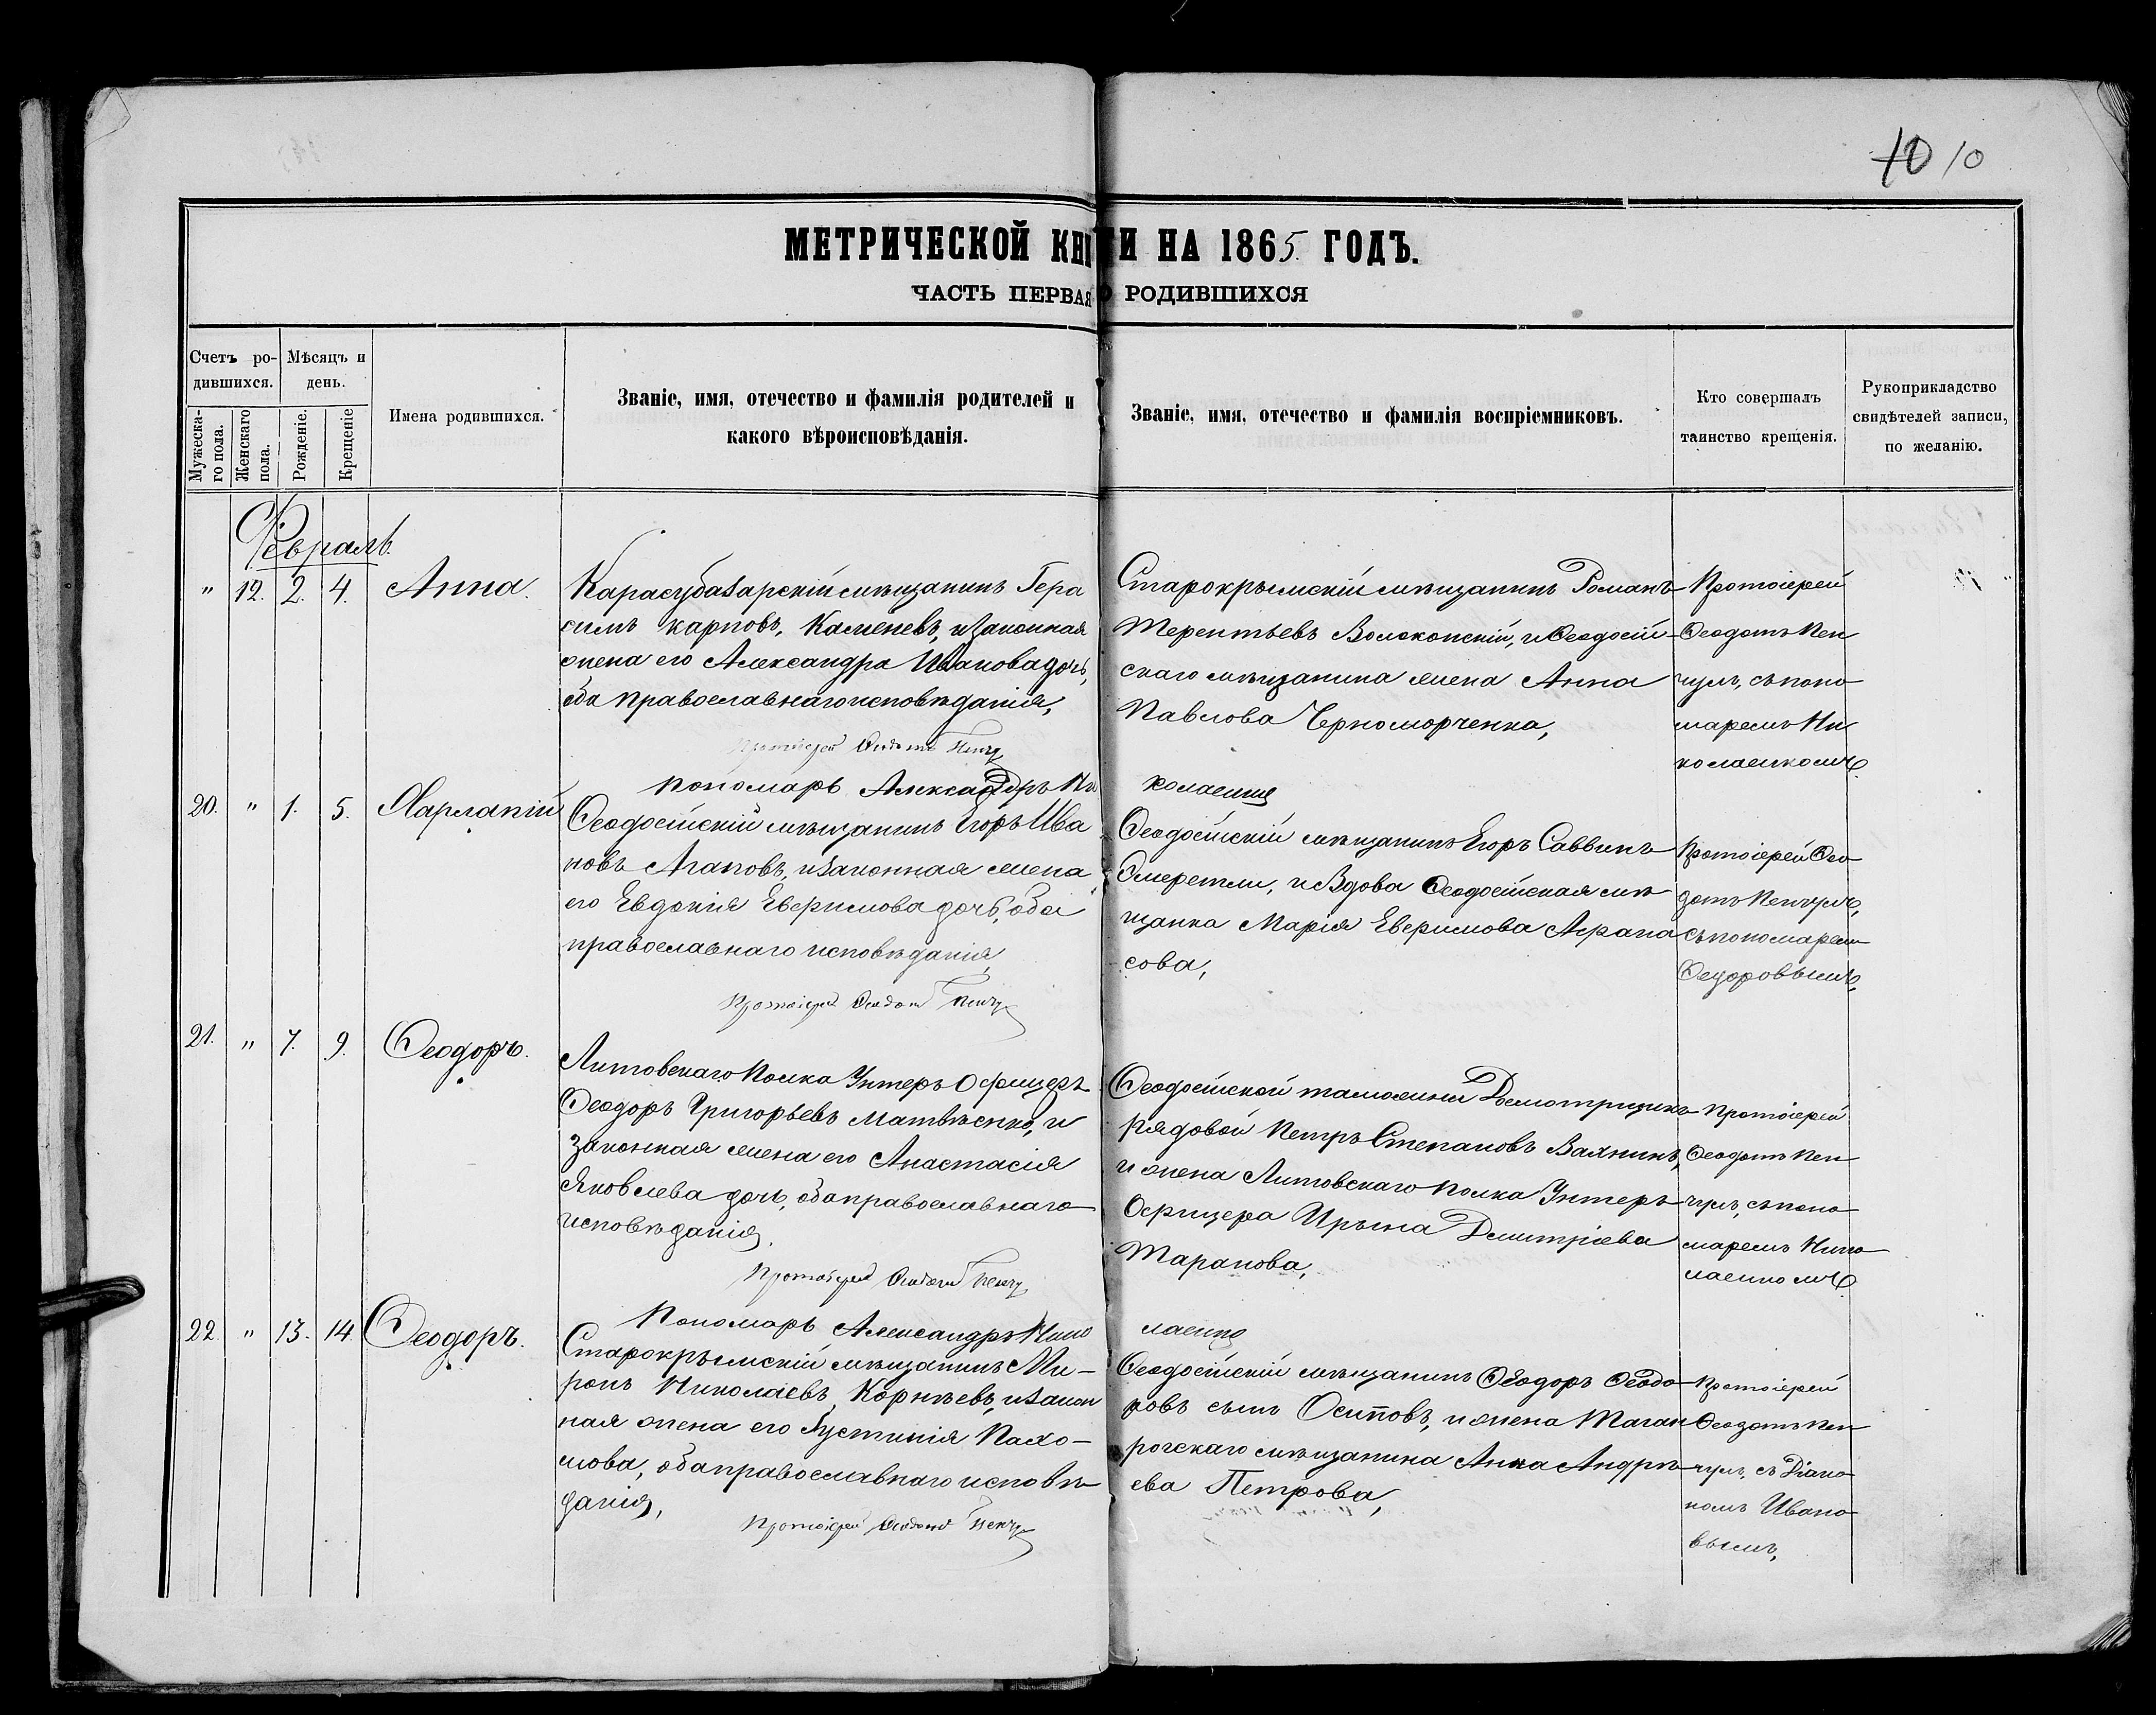 10 10
МЕТРИЧЕСКОЙ КНИГИ НА 1865 ГОДЪ.
ЧАСТЬ ПЕРВАЯ О РОДИВШИХСЯ
Счетъ ро-
дившихся.
Мужеска-
го пола.
Женскаго
пола.
Мѣсяцъ и
день.
Рожденіе.
Крещеніе
Имена родившихся.
Званіе, имя, отечество и фамилія родителей и
какого вѣроисповѣданія.
Званіе, имя, отечество и фамилія воспріемниковъ.
Кто совершалъ
таинство крещенія.
Рукоприкладство
свидѣтелей записи,
по желанію.
Февраль.
" 12. 2. 4. Анна.
Карасубазарскій мѣщанинъ Гера
симъ Карповъ, Каменевъ, и законная
жена его Александра Иванова дочь,
оба православнаго исповѣданія,
Протоіерей Ѳеодотъ Пенчу
Старокрымскій мѣщанинъ Романъ
Терентьевъ Волоконскій, и Ѳеодосій
скаго мѣщанина жена Анна
Павлова Черноморченка,
Протоіерей
Ѳеодотъ Пен
чулъ, съ поно
маремъ Ни
колаенкомъ.
Пономарь Александръ Ни
колаенко
20. " 1. 5. Харлапій
Ѳеодосійскій мѣщанинъ Егоръ Ива
новъ Агаповъ, и законная жена
его Евдокія Еверимова дочь, оба
православнаго исповѣданія,
Протоіерей Ѳеодотъ Пенчу
Ѳеодосійскій мѣщанинъ Егоръ Саввинъ
Омеретли, и Вдова Ѳеодосійская мѣ
щанка Марія Еверимова Арапа
сова,
Протоіерей Ѳео
дотъ Пенчулъ,
съ пономаремъ
Ѳедоровымъ,
21. " 7. 9. Ѳеодоръ.
Литовскаго Полка Унтеръ Офицеръ
Ѳеодоръ Григорьевъ Матвѣенко, и
законная жена его Анастасія
Яковлева дочь, оба православнаго
исповѣданія.
Протоіерей Ѳеодотъ Пенчу
Ѳеодосійской таможни Досмотрщикъ
рядовой Петръ Степановъ Вахнинъ,
и жена Литовскаго полка Унтеръ
Офицера Ирына Дмитріева
Таранова,
Протоіерей
Ѳеодотъ Пен
чулъ, съ поно
маремъ Нико
лаенкомъ.
Пономарь Александръ Нико
лаенко
22. " 13. 14. Ѳеодоръ.
Старокрымскій мѣщанинъ Ми-
ронъ Николаевъ Корнѣевъ, и закон
ная жена его Іустинія Пахо-
мова, оба православнаго исповѣ-
данія,
Протоіерей Ѳеодотъ Пенчу
Ѳеодосійскій мѣщанинъ Ѳеодоръ Ѳеодо
ровъ сынъ Осиповъ, и жена Таган
рогскаго мѣщанина Анна Андрѣ
ева Петрова,
Протоіерей
Ѳеодотъ Пен
чулъ, съ Діако
номъ Ивано
вымъ,